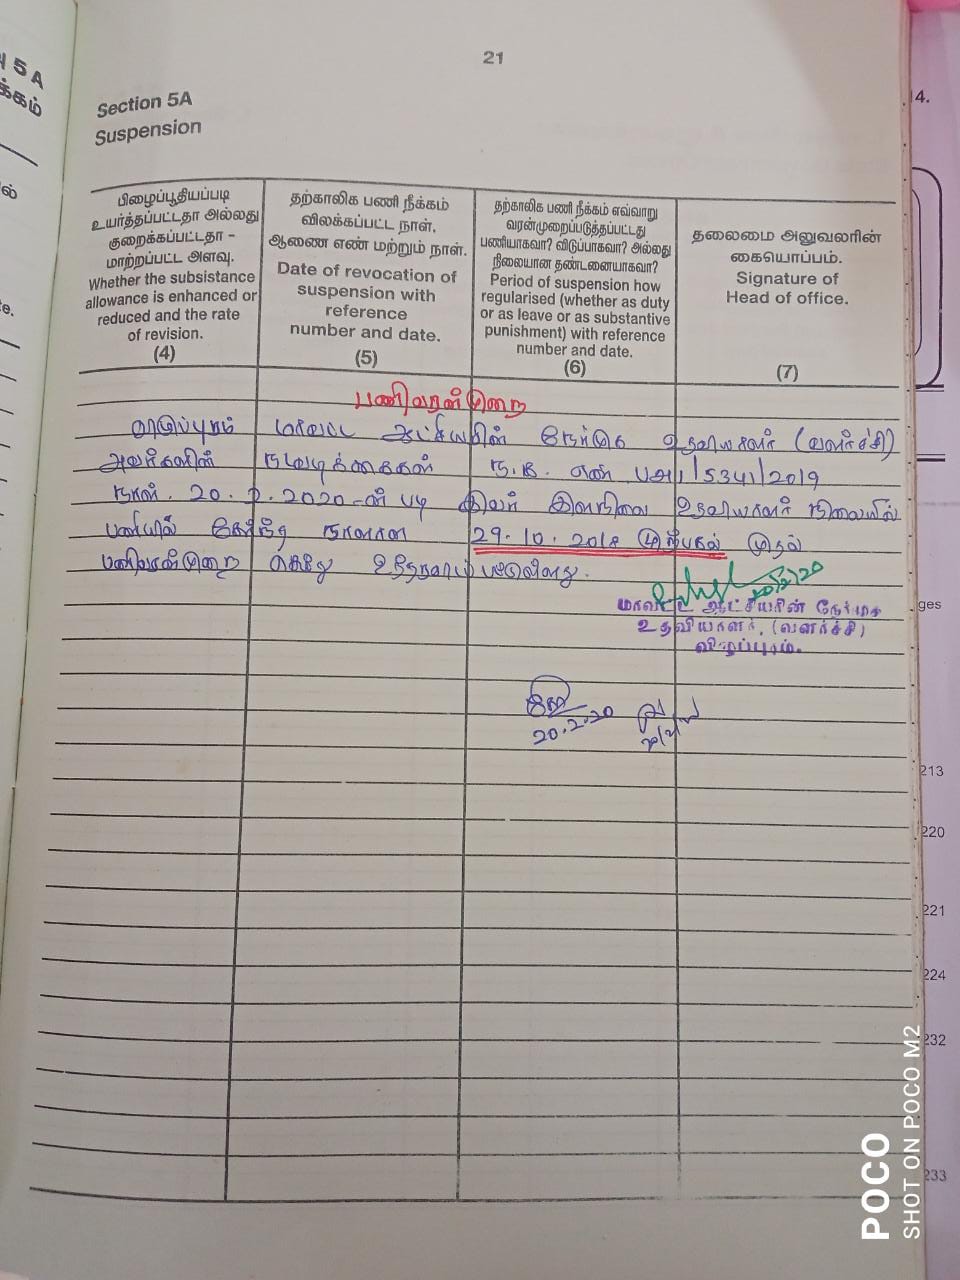 21
Section 5A
Suspension
பிழைப்பூதியப்படி
உயர்த்தப்பட்டதா அல்லது
குறைக்கப்பட்டதா -
மாற்றப்பட்ட அளவு.
Whether the subsistance
allowance is enhanced or
reduced and the rate
of revision.
(4)
தற்காலிக பணி நீக்கம்
விலக்கப்பட்ட நாள்.
ஆணை எண் மற்றும் நாள்.
Date of revocation of
suspension with
reference
number and date.
(5)
தற்காலிக பணி நீக்கம் எவ்வாறு
வரன்முறைப்படுத்தப்பட்டது
பணியாகவா? விடுப்பாகவா? அல்லது
நிலையான தண்டனையாகவா?
Period of suspension how
regularised (whether as duty
or as leave or as substantive
punishment) with reference
number and date.
(6)
தலைமை அனுவலரின்
கையொப்பம்.
Signature of
Head of office.
(7)
பணிவரன்முறை
மாவட்ட ஆட்சியரின் நேர்முக உதவியாளர் (வளர்ச்சி)
அவர்களின் நடவடிக்கைகள் ந.க. எண் பஅ1/5341/2019
நாள். 20.2.2020-ன் படி இவர் இளநிலை உதவியாளர் நிலையில்
பணியில் சேர்ந்த நாளான 29.10.2018 முற்பகல் முதல்
பணிவரன்முறை செய்து உத்தரவிடப்பட்டுள்ளது.
20/2/20
மாவட்ட ஆட்சியரின் நேர்முக
உதவியாளர், (வளர்ச்சி)
விழுப்புரம்.
20.2.20
5A
க்கம்
4.
ges
213
220
221
224
232
233
POCO
SHOT ON POCO M2